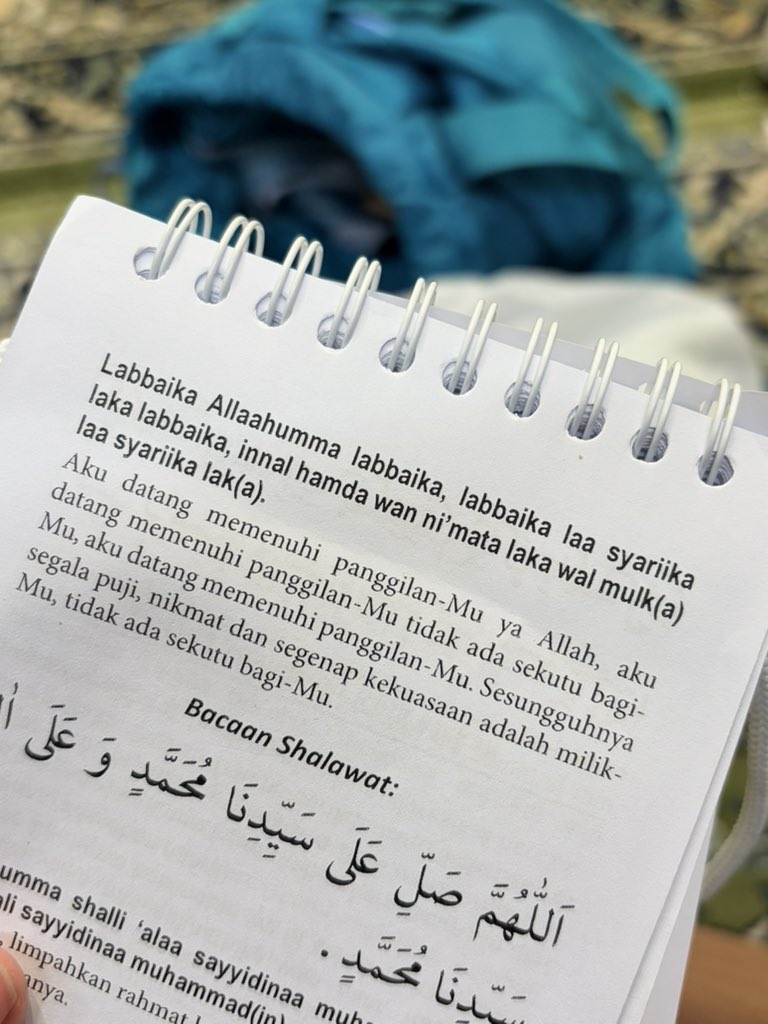 Labbaika Allaahumma labbaika, labbaika laa syariika
laka labbaika, innal hamda wan ni'mata laka wal mulk(a)
laa syariika lak(a).
Aku datang memenuhi panggilan-Mu ya Allah, aku
datang memenuhi panggilan-Mu tidak ada sekutu bagi-
Mu, aku datang memenuhi panggilan-Mu. Sesungguhnya
segala puji, nikmat dan segenap kekuasaan adalah milik-
Mu, tidak ada sekutu bagi-Mu.
Bacaan Shalawat:
اَللّٰهُمَّ صَلِّ عَلَى سَيِّدِنَا مُحَمَّدٍ وَ عَلَى
سَيِّدِنَا مُحَمَّدٍ .
shalli 'alaa sayyidinaa
sayyidinaa muhammad(in)
limpahkan rahmat